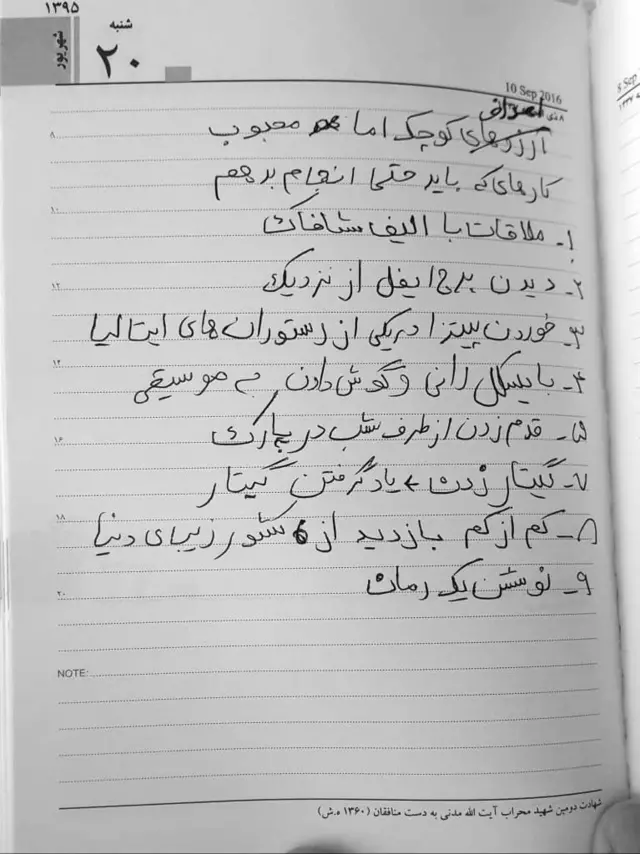 ۱۳۹۵
شهریور
شنبه
۲۰
10 Sep 2016
اهداف
آرزوهای کوچک اما محبوب
کارهای که باید حتمی انجام بدهم
۱- ملاقات با الیف شافاک
۲- دیدن برج ایفل از نزدیک
۳- خوردن پیتزا در یکی از رستوران های ایتالیا
۴- بایسکل رانی و گوش دادن به موسیقی
۵- قدم زدن از طرف شب در پارک
۷- گیتار زدن ← یاد گرفتن گیتار
۸- کم از کم بازدید از 6 کشور زیبای دنیا
۹- نوشتن یک رمان
۸
۱۰
۱۲
۱۴
۱۶
۱۸
۲۰
NOTE:
شهادت دومین شهید محراب آیت الله مدنی به دست منافقان (۱۳۶۰ ه.ش)